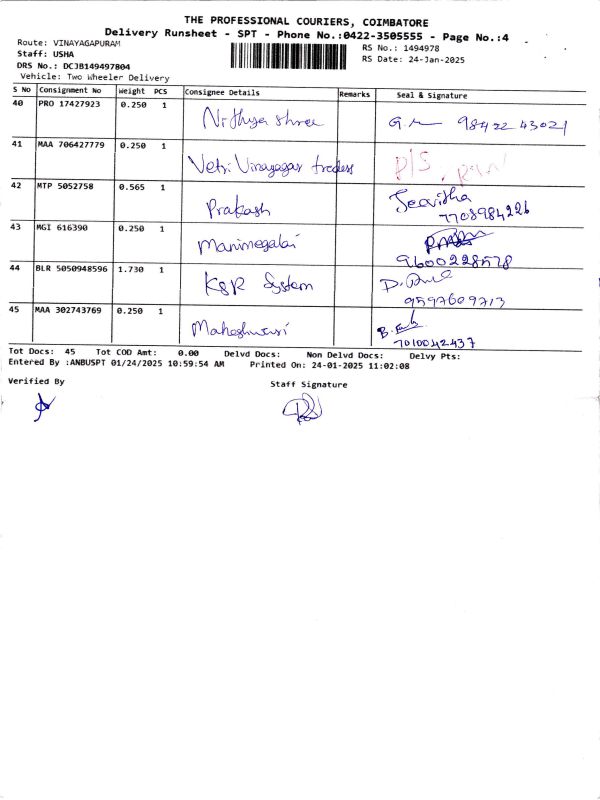 THE PROFESSIONAL COURIERS, COIMBATORE
Delivery Runsheet - SPT - Phone No.:0422-3505555 - Page No.:4
Route: VINAYAGAPURAM
Staff: USHA
DRS No.: DCJB149497804
Vehicle: Two Wheeler Delivery
RS No.: 1494978
RS Date: 24-Jan-2025
S No Consignment No Weight PCS Consignee Details Remarks Seal & Signature
40 PRO 17427923 0.250 1 Nithya shree 98422 43021
41 MAA 706427779 0.250 1 Vetri Vinayagar traders P/S
42 MTP 5052758 0.565 1 Prakash Jeevitha
7708984226
43 MGI 616390 0.250 1 Manimegalai
9600228578
44 BLR 5050948596 1.730 1 KGR System
9597609713
45 MAA 302743769 0.250 1 Maheshwari
7010042437
Tot Docs: 45 Tot COD Amt: 0.00 Delvd Docs: Non Delvd Docs: Delvy Pts:
Entered By :ANBUSPT 01/24/2025 10:59:54 AM Printed On: 24-01-2025 11:02:08
Verified By Staff Signature